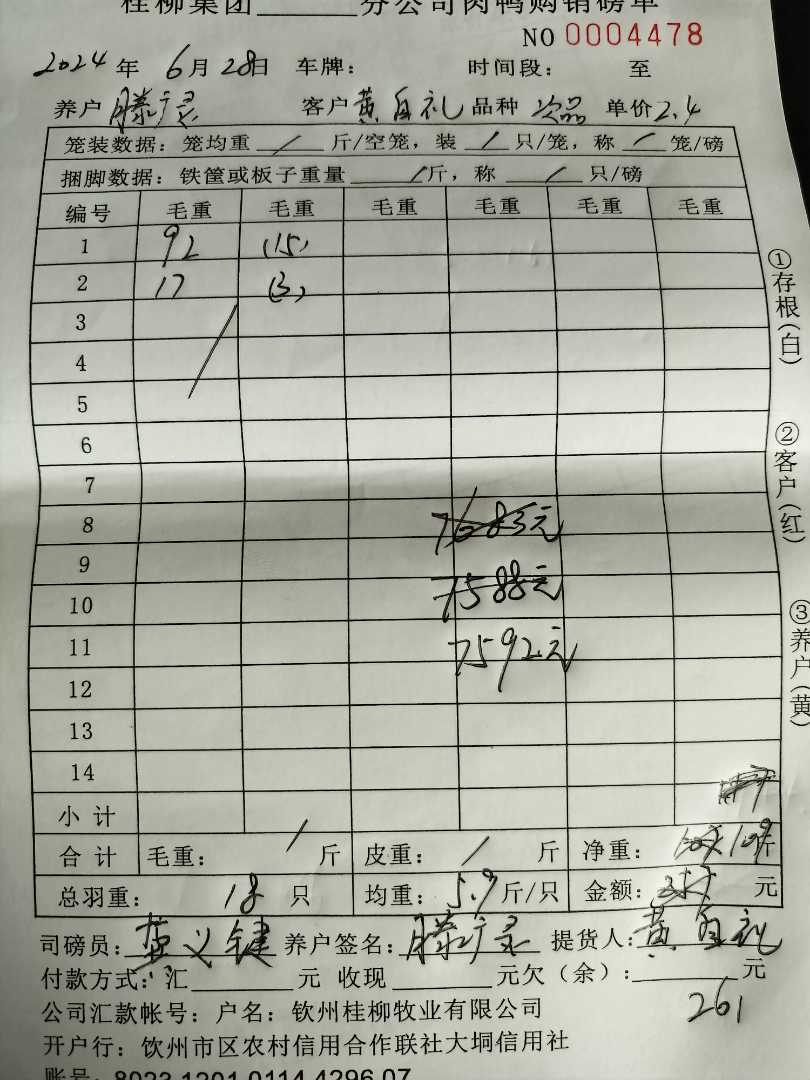 桂柳集团______分公司肉鸭购销磅单
NO 0004478
2024 年 6 月 28 日 车牌: 时间段: 至
养户 滕广灵 客户 黄自礼 品种 次品 单价 2.4
笼装数据: 笼均重 / 斤/空笼, 装 / 只/笼, 称 / 笼/磅
捆脚数据: 铁筐或板子重量 / 斤, 称 / 只/磅
编号 毛重 毛重 毛重 毛重 毛重 毛重
1 92 (15)
2 17 (3)
3
4
5
6
7
8 7683元
9
10 7588元
11 7592元
12
13
14
小计
合计 毛重: / 斤 皮重: / 斤 净重: 109 斤
总羽重: 18 只 均重: 5.9 斤/只 金额: 元
司磅员: 义键 养户签名: 滕广灵 提货人: 黄自礼
付款方式: 汇______元 收现______元欠(余):______元
261
公司汇款帐号: 户名: 钦州桂柳牧业有限公司
开户行: 钦州市区农村信用合作联社大垌信用社
账号: 8023 1201 0114 4296 07
①存根(白)
②客户(红)
③养户(黄)